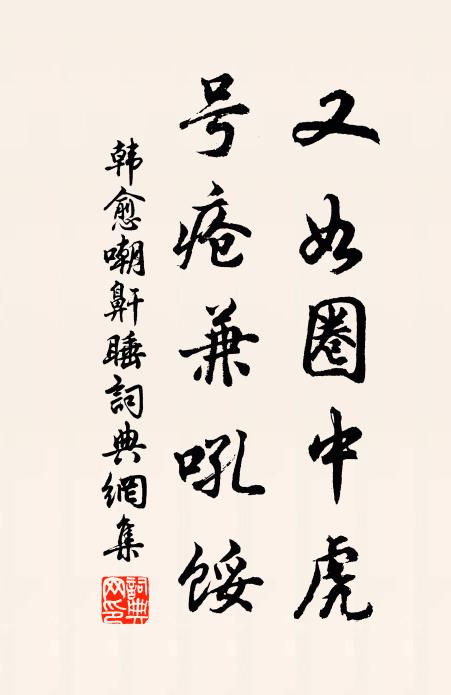 又如圈中虎
号疮兼吼馁
韩愈嘲鼾睡詞典網集
詞典
网印